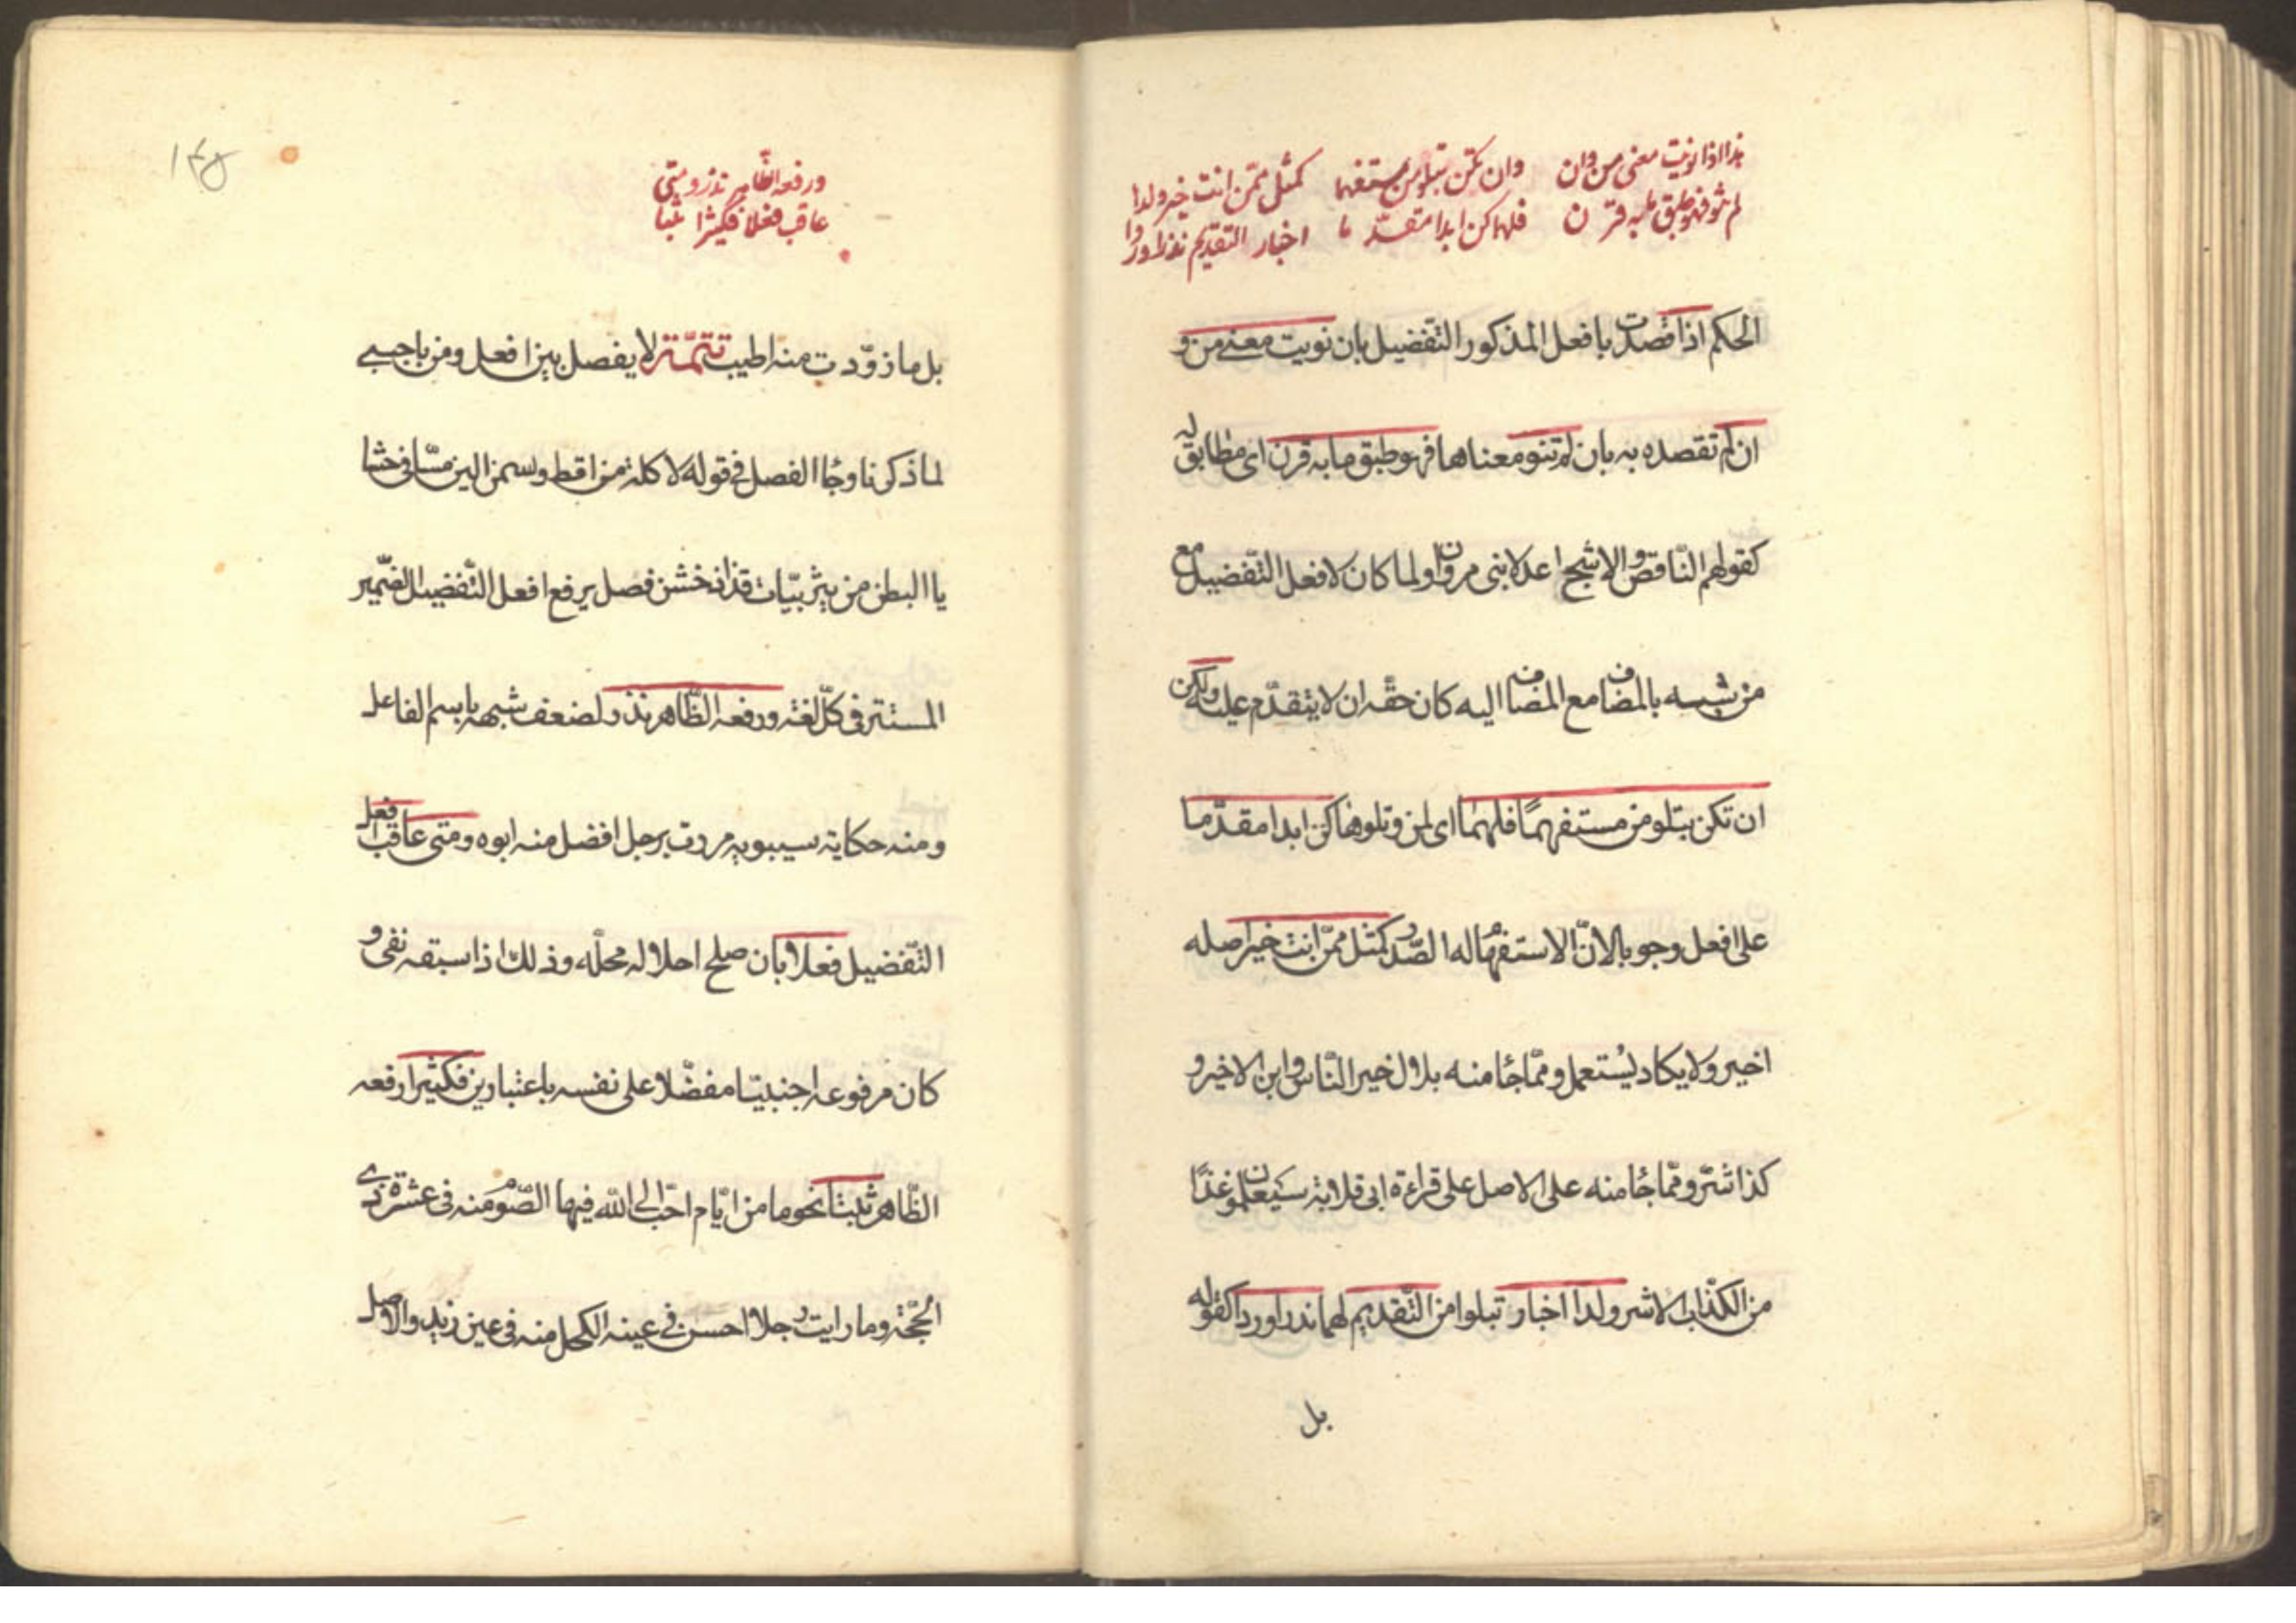 هذا اذا نويت معنى من وان    وان تكن بتلو من مستفهما    كمثل ممّن انت خير ولدا
لم تنو فهو طبق ما به قرن    فلهما كن ابدا مقدّما    اخبار التقديم نذرا وردا
الحكم اذا قصدت بافعل المذكور التّفضيل بان نويت معنى من و
ان لم تقصده به بان لم تنو معناها فهو طبق ما به قرن اى مطابق له
كقولهم النّاقص والاشجّ اعدلا بنى مروان ولما كان لافعل التّفضيل مع
من شبه بالمضاف مع المضاف اليه كان حقّه ان لا يتقدّم عليه ولكن
ان تكن بتلو من مستفهمًا فلهما اى لمن وتلوها كن ابدا مقدّما
على افعل وجوبا لانّ الاستفهام له الصّدر كمثل ممّن انت خير اصله
اخير ولا يكاد يُستعمل وممّا جٔا منه بلال خير النّاس وابن الاخير و
كذا شرّ وممّا جٔا منه على الاصل على قراءة ابى قلابة سَيَعلمون غدًا
من الكذّاب الاشر ولدا اخبار تبلوا من التّقديم لهما نذرا وردا كقوله
بل
١٤٥
ورفعه الظّاهر نذر ومتى
عاقب فعلا فكثيرا ثبتا
بل ما زوّدت منه اطيب تتمّة لا يفصل بين افعل ومن باجنبى
لما ذكرنا وجٔا الفصل فى قوله لاكلة من اقط وسمن الين مسّا فى حشا
يا البطن من يثربيّات قذاذ خشن فصل يرفع افعل التّفضيل الضّمير
المستتر فى كلّ لغة ورفعه الظّاهر نذر ولضعف شبهه باسم الفاعل
ومنه حكاية سيبويه مررت برجل افضل منه ابوه ومتى عاقب افعل
التّفضيل فعلا بان صلح احلاله محلّه وذلك اذا سبقه نفى و
كان مرفوعه اجنبيّا مفضّلا على نفسه باعتبارين فكثيرا رفعه
الظّاهر ثبتا نحو ما من ايّام احبّ الى الله فيها الصّوم منه فى عشر ذى
الحجّة وما رايت رجلا احسن فى عينه الكحل منه فى عين زيد والاصل